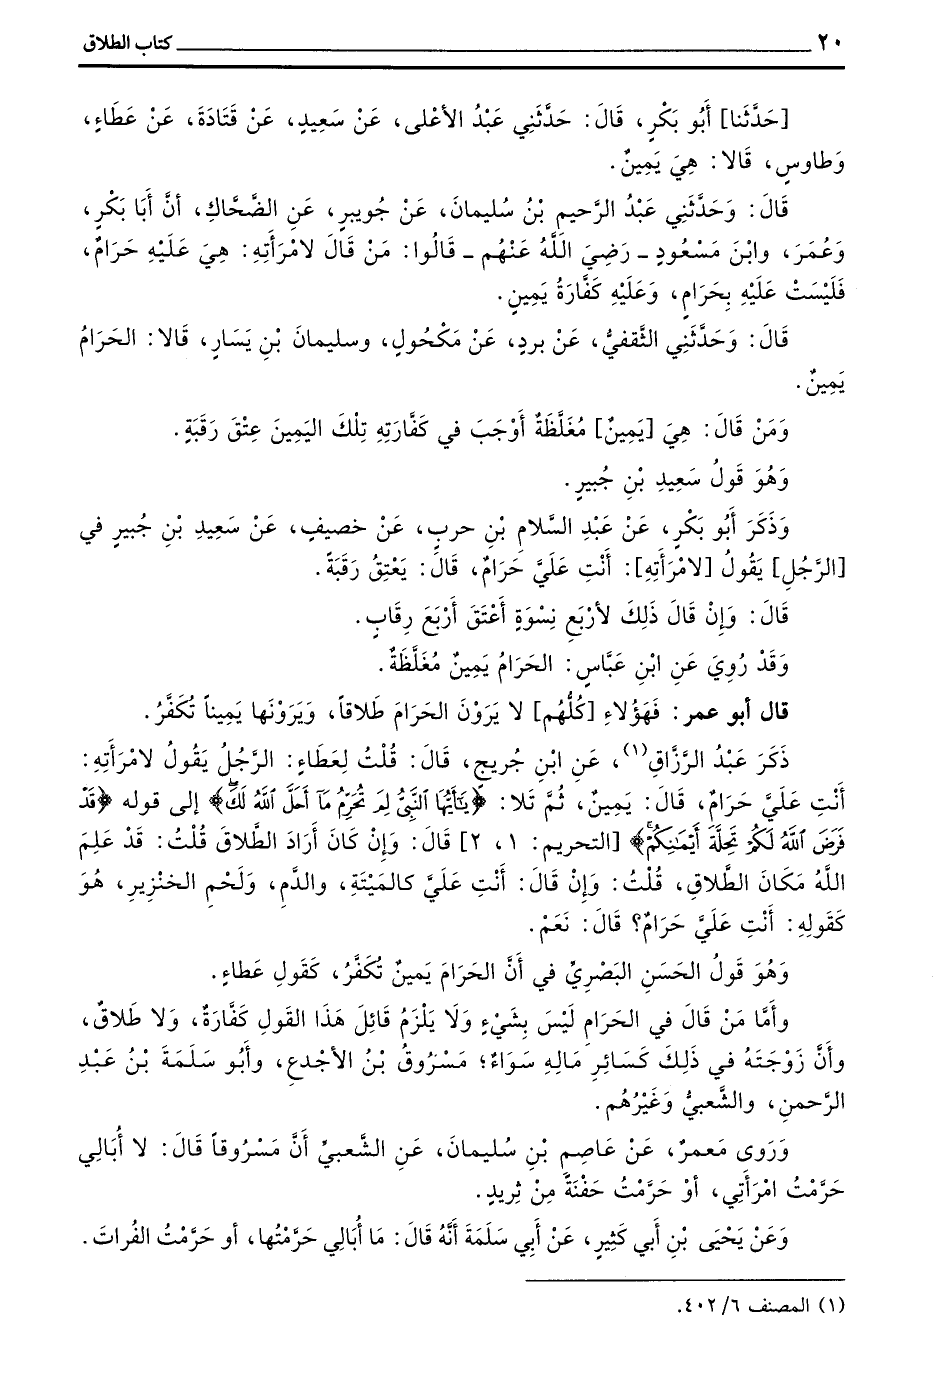 ٢٠ كتاب الطلاق
[حَدَّثَنا] أَبُو بَكْرٍ، قَالَ: حَدَّثَنِي عَبْدُ الأعْلى، عَنْ سَعِيدٍ، عَنْ قَتَادَةَ، عَنْ عَطَاءٍ،
وَطاوسٍ، قَالا: هِيَ يَمِينٌ.
قَالَ: وَحَدَّثَنِي عَبْدُ الرَّحيمِ بْنُ سُليمانَ، عَنْ جُويبرٍ، عَنِ الضَّحَّاكِ، أنَّ أبَا بَكْرٍ،
وَعُمَرَ، وابْنَ مَسْعُودٍ ـ رَضِيَ اللَّهُ عَنْهُم ـ قَالُوا: مَنْ قَالَ لامْرَأتِهِ: هِيَ عَلَيْهِ حَرامٌ،
فَلَيْسَتْ عَلَيْهِ بِحَرامٍ، وَعَلَيْهِ كَفَّارَةُ يَمِينٍ.
قَالَ: وَحَدَّثَنِي الثَّقفيُّ، عَنْ بردٍ، عَنْ مَكْحُولٍ، وسليمانَ بْنِ يَسَارٍ، قَالا: الحَرامُ
يَمِينٌ.
وَمَنْ قَالَ: هِيَ [يَمِينٌ] مُغَلَّظَةٌ أوْجَبَ في كَفَّارَتِهِ تِلْكَ اليَمِينَ عِتْقَ رَقَبَةٍ.
وَهُوَ قَولُ سَعِيدِ بْنِ جُبيرٍ.
وَذَكَرَ أَبُو بَكْرٍ، عَنْ عَبْدِ السَّلامِ بْنِ حربٍ، عَنْ خصيفٍ، عَنْ سَعِيدِ بْنِ جُبيرٍ في
[الرَّجُلِ] يَقُولُ [لامْرَأتِهِ]: أنْتِ عَلَيَّ حَرَامٌ، قَالَ: يَعْتِقُ رَقَبَةً.
قَالَ: وَإنْ قَالَ ذَلِكَ لأرْبَعِ نِسْوَةٍ أعْتَقَ أرْبَعَ رِقَابٍ.
وَقَدْ رُوِيَ عَنِ ابْنِ عَبَّاسٍ: الحَرامُ يَمِينٌ مُغَلَّظَةٌ.
قال أبو عمر: فَهَؤُلاءِ [كُلُّهُم] لا يَرَوْنَ الحَرامَ طَلاقاً، وَيَرَوْنَها يَمِيناً تُكَفَّرُ.
ذَكَرَ عَبْدُ الرَّزَّاقِ(١)، عَنِ ابْنِ جُريجٍ، قَالَ: قُلْتُ لِعَطَاءٍ: الرَّجُلُ يَقُولُ لامْرَأَتِهِ:
أنْتِ عَلَيَّ حَرَامٌ، قَالَ: يَمِينٌ، ثُمَّ تَلا: ﴿يَٰٓأَيُّهَا ٱلنَّبِيُّ لِمَ تُحَرِّمُ مَآ أَحَلَّ ٱللَّهُ لَكَ﴾ إلى قوله ﴿قَدْ
فَرَضَ ٱللَّهُ لَكُمْ تَحِلَّةَ أَيْمَٰنِكُمْ﴾ [التحريم: ١، ٢] قَالَ: وَإِنْ كَانَ أرَادَ الطَّلاقَ قُلْتُ: قَدْ عَلِمَ
اللَّهُ مَكَانَ الطَّلاقِ، قُلْتُ: وَإِنْ قَالَ: أنْتِ عَلَيَّ كالمَيْتَةِ، والدَّمِ، وَلَحْمِ الخنْزِيرِ، هُوَ
كَقَولِهِ: أنْتِ عَلَيَّ حَرَامٌ؟ قَالَ: نَعَمْ.
وَهُوَ قَولُ الحَسَنِ البَصْرِيِّ في أنَّ الحَرامَ يَمِينٌ تُكَفَّرُ، كَقَولِ عَطاءٍ.
وأمَّا مَنْ قَالَ في الحَرامِ لَيْسَ بِشَيْءٍ وَلَا يَلْزَمُ قَائِلَ هَذَا القَولِ كَفَّارَةٌ، وَلا طَلاقٌ،
وأنَّ زَوْجَتَهُ في ذَلِكَ كَسَائِرِ مَالِهِ سَوَاءٌ؛ مَسْرُوقُ بْنُ الأجْدعِ، وأبُو سَلَمَةَ بْنُ عَبْدِ
الرَّحمنِ، والشَّعبيُّ وَغَيْرُهُم.
وَرَوى مَعمرٌ، عَنْ عاصِمِ بْنِ سُليمانَ، عَنِ الشَّعبيِّ أنَّ مَسْرُوقاً قَالَ: لا أُبَالِي
حَرَّمْتُ امْرَأتِي، أوْ حَرَّمْتُ حَفْنَةً مِنْ ثِريدٍ.
وَعَنْ يَحْيَى بْنِ أبي كَثِيرٍ، عَنْ أبي سَلَمَةَ أنَّهُ قَالَ: مَا أُبَالِي حَرَّمْتُها، أو حَرَّمْتُ الفُراتَ.
(١) المصنف ٦/ ٤٠٢.